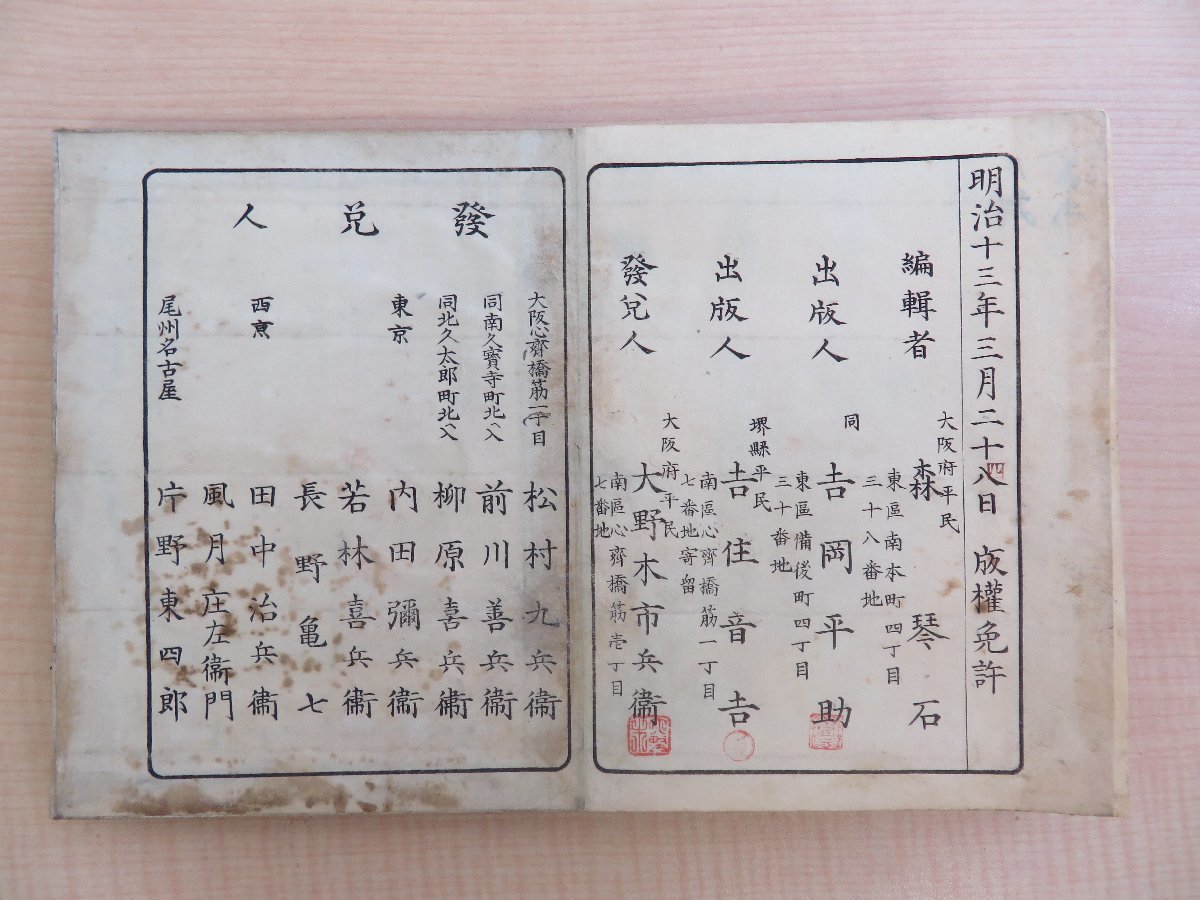 明治十三年三月二十八日 版權免許
編輯者
大阪府平民
森琴石
東區南本町四丁目
三十八番地
出版人
同
吉岡平助
東區備後町四丁目
三十番地
出版人
堺縣平民
吉住音吉
南區心齊橋筋一丁目
七番地寄留
發兌人
大阪府平民
大野木市兵衞
南區心齊橋筋壱丁目
七番地
發兌人
大阪心齊橋筋一丁目 松村九兵衞
同南久寳寺町北ヘ入 前川善兵衞
同北久太郎町北ヘ入 柳原喜兵衞
東京 内田彌兵衞
若林喜兵衞
長野亀七
西亰 田中治兵衞
風月庄左衞門
尾州名古屋 片野東四郎